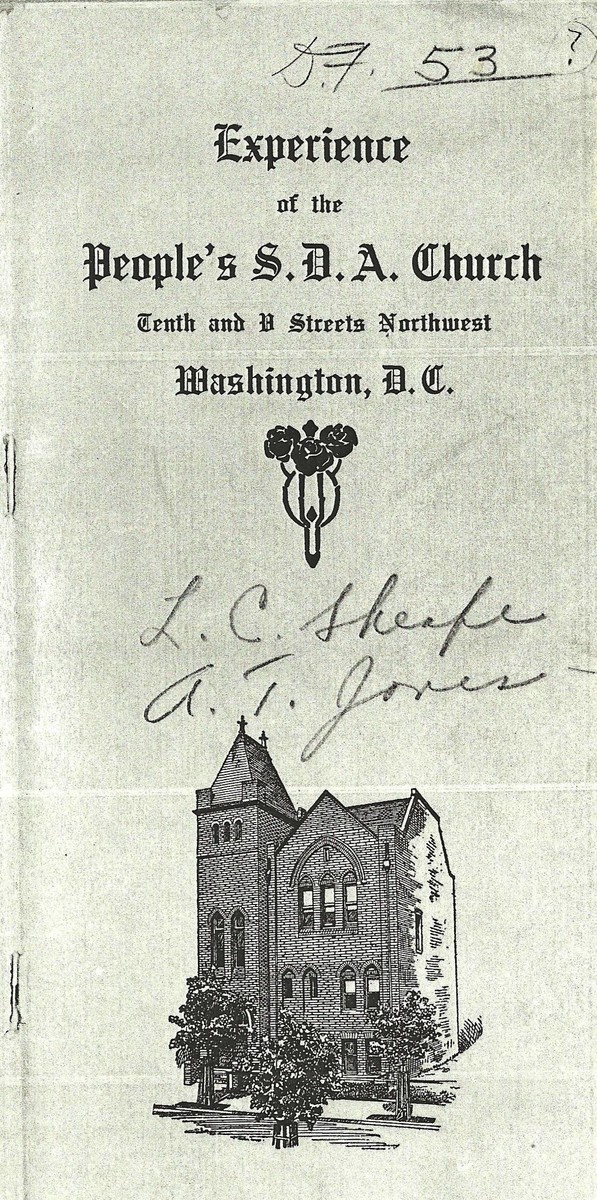 D.F. 53 ?
Experience
of the
People's S.D.A. Church
Tenth and V Streets Northwest
Washington, D.C.
L. C. Sheafe
A. T. Jones